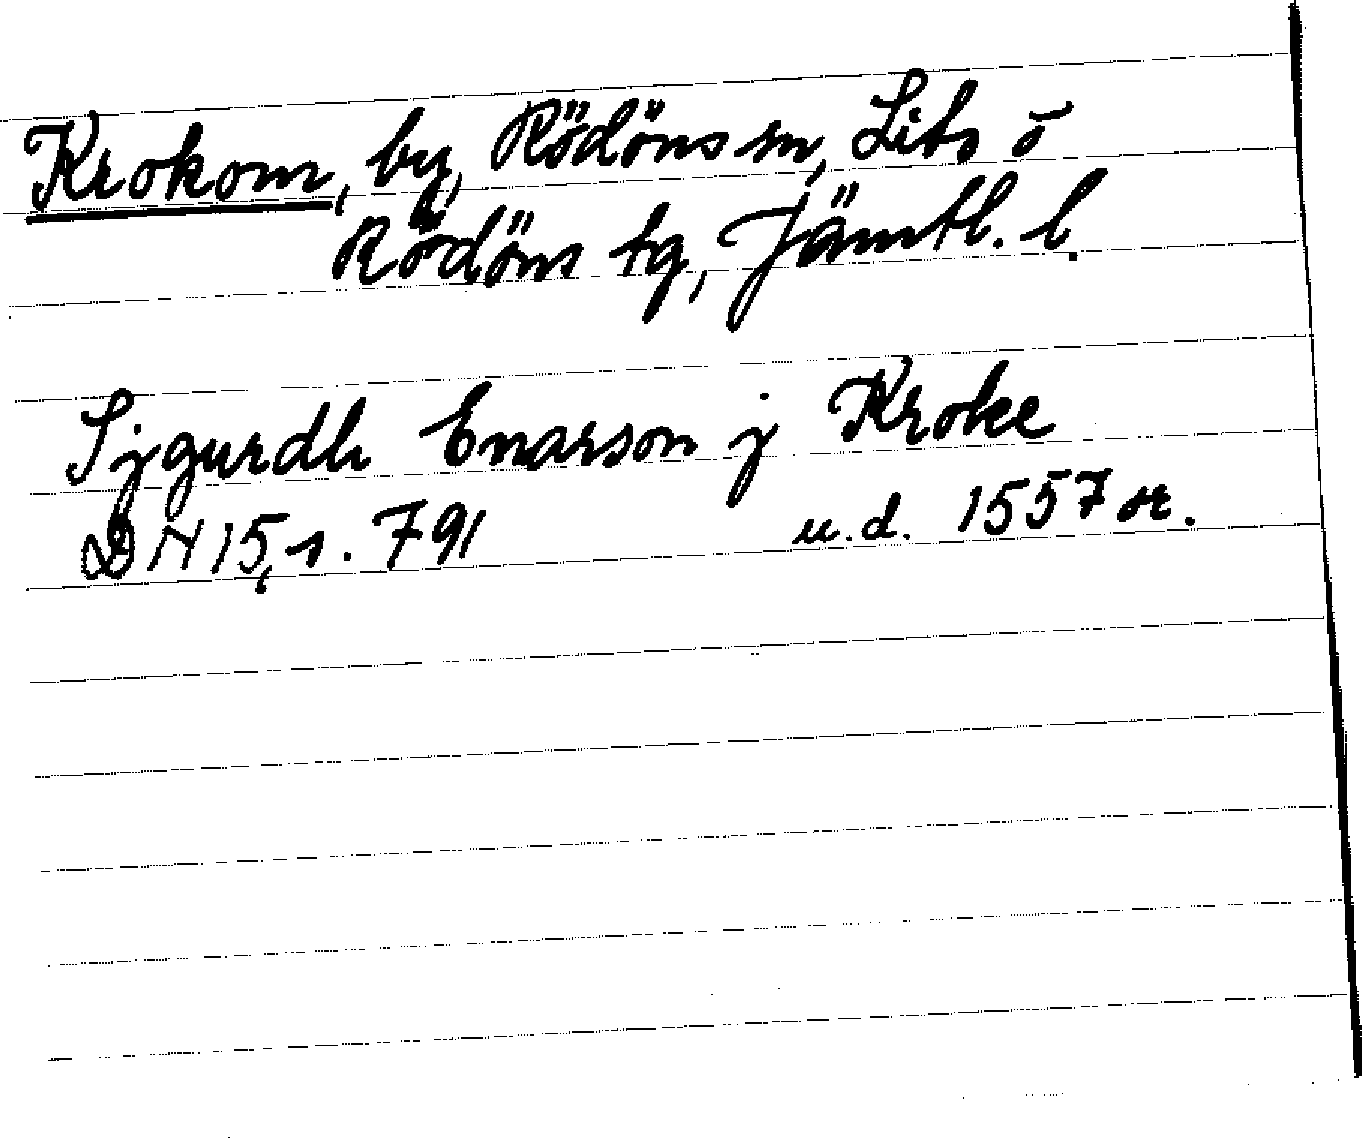 Krokom, by, Rödöns sn, Lits o
Rödöns tg, Jämtl. l.
Sjgurdh Enarson j Kroke
DN 15, s. 791 u.d. 1557 or.